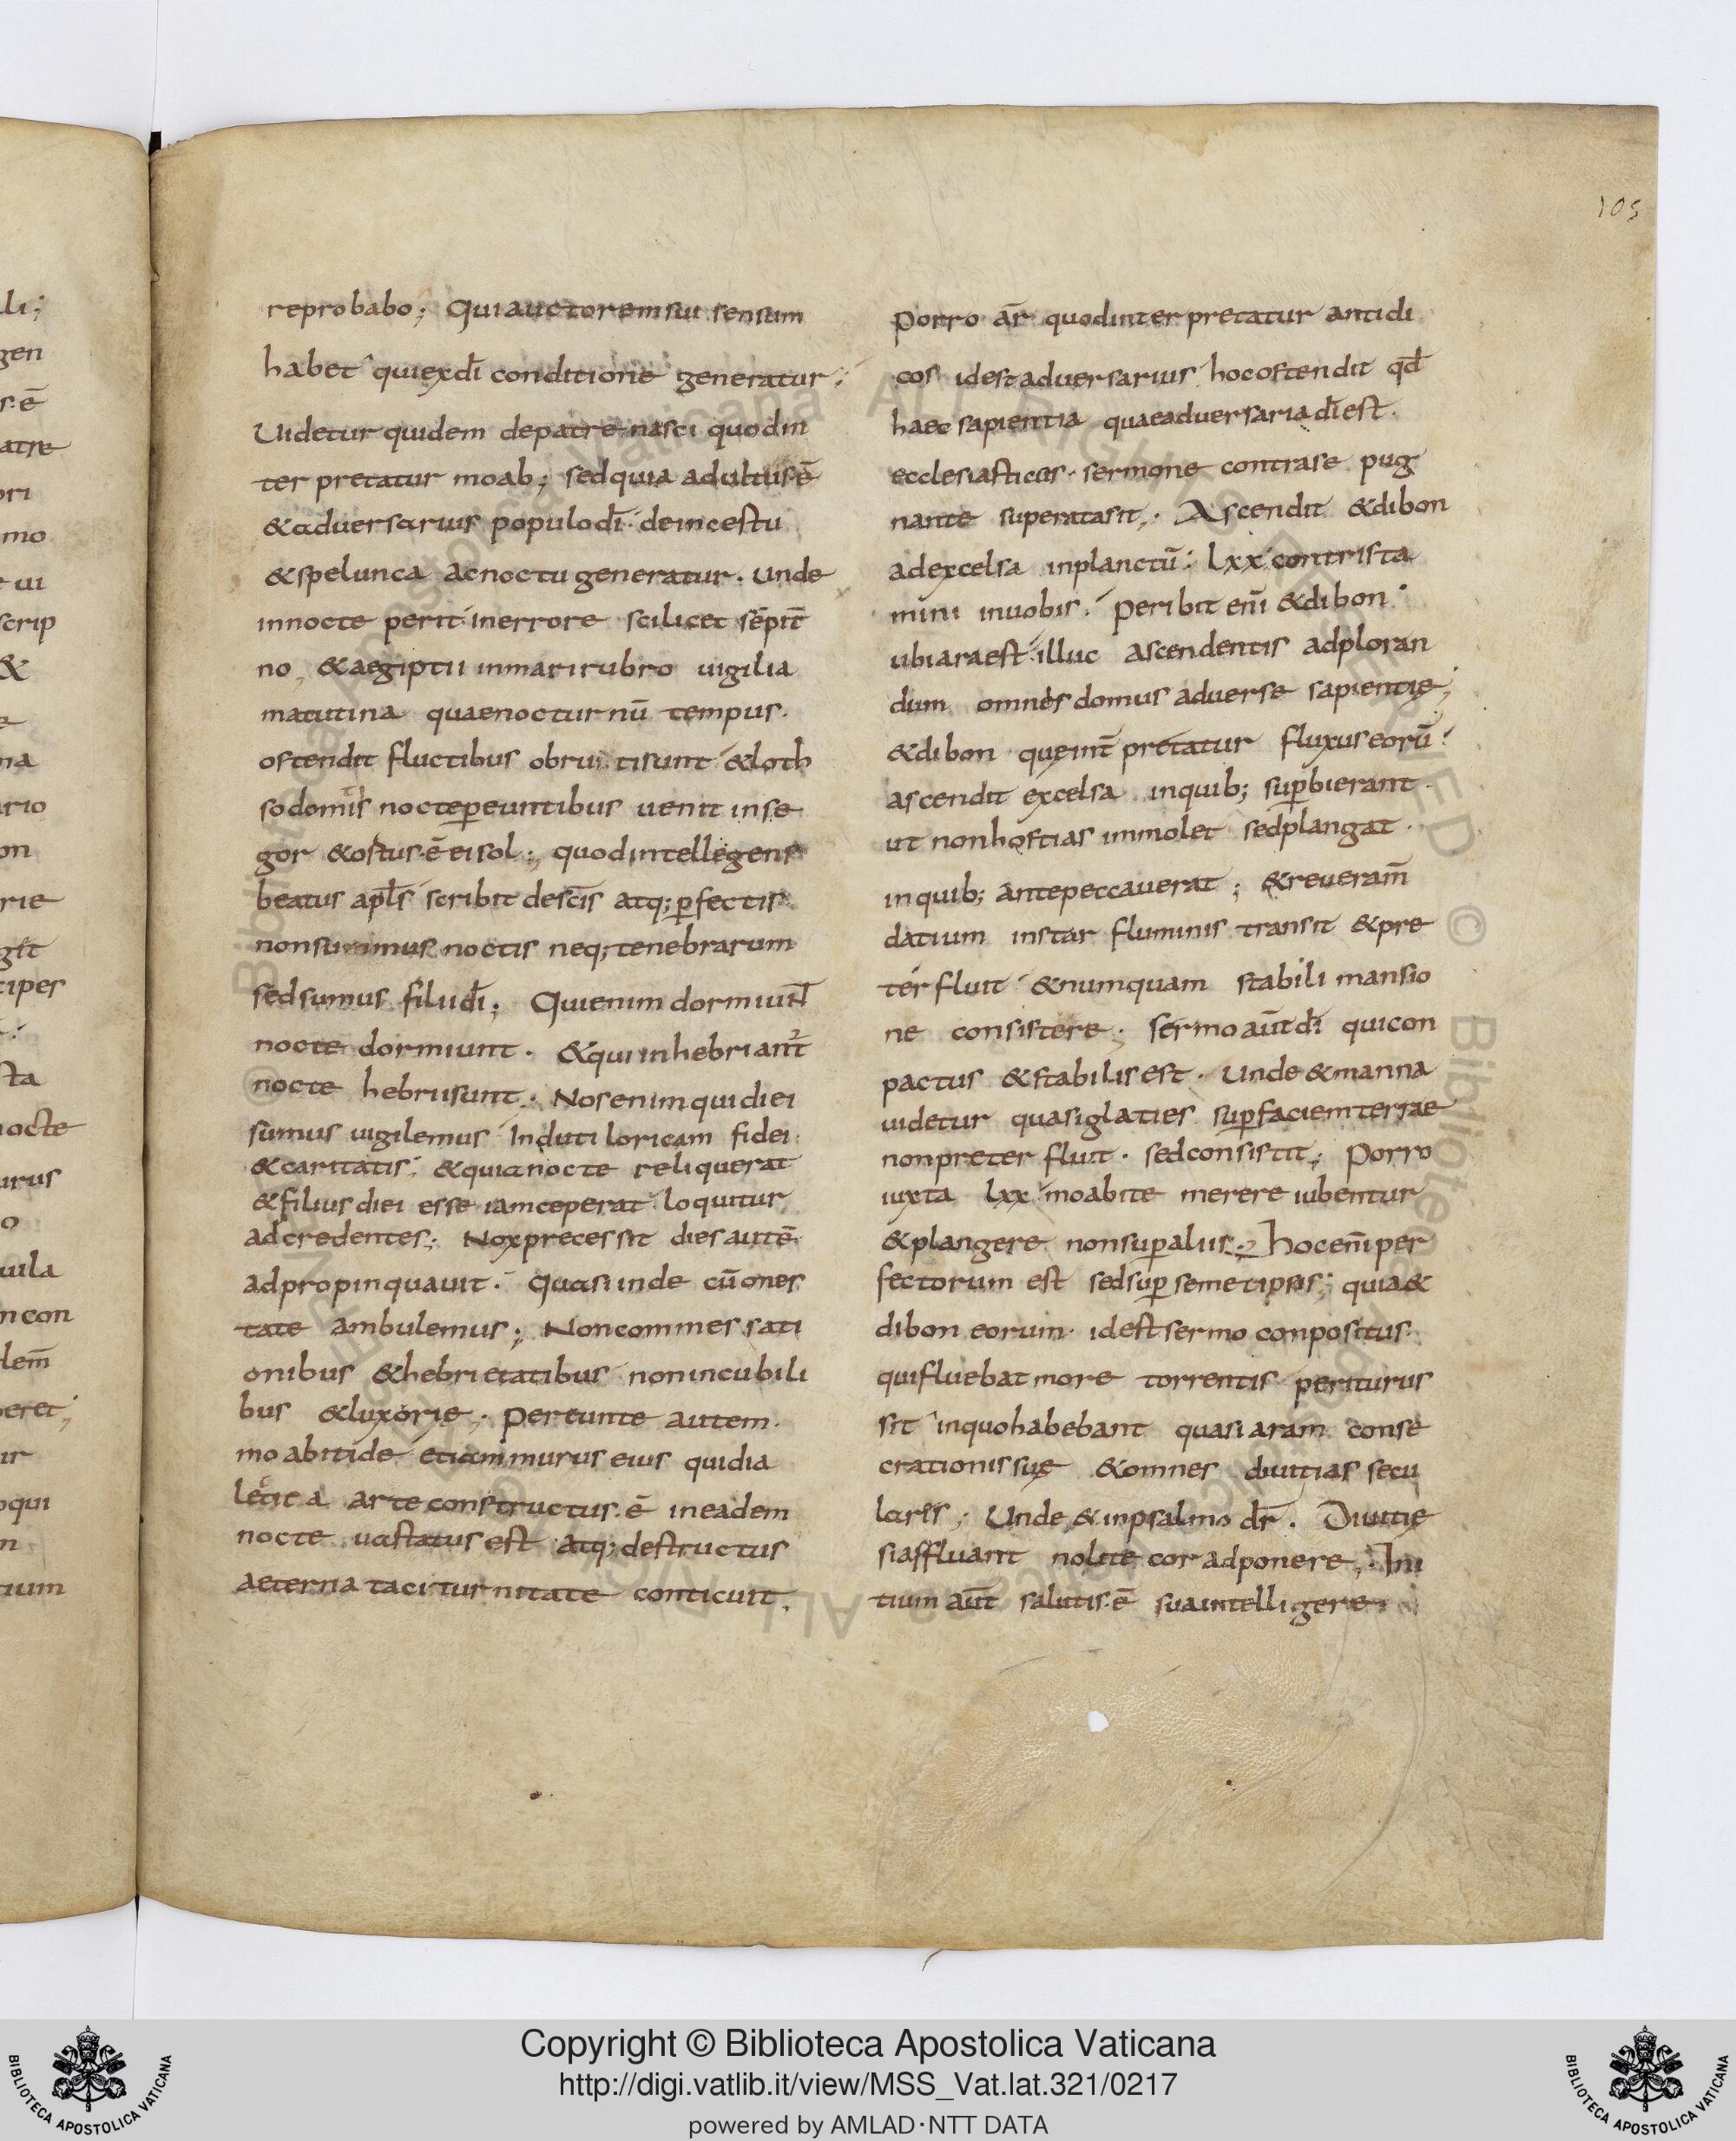 105
reprobabo; Qui auctorem sui sensum
habet qui ex dī conditione generatur;
Uidetur quidem de patre nasci quod in
ter pretatur moab; sed quia adultus ē
& adversarius populo dī de incestu
& spelunca ac noctu generatur. Unde
in nocte perit in errore scilicet sēpit̄
no, & aegiptii in mari rubro uigilia
matutina quae nocturnū tempus.
ostendit fluctibus obruti sunt & loth
sodomis nocte pereuntibus uenit in se
gor & ostus ē ei sol; quod intellegens
beatus apl̄s scribit desc̄is atq; ꝑfectis
non sumus noctis neq; tenebrarum
sed sumus filii dī; Qui enim dormiunt̄
nocte dormiunt. & qui inhebriant̄
nocte hebrii sunt. Nos enim qui diei
sumus uigilemus Induti loricam fidei
& caritatis; & quia nocte reliquerat
& filius diei esse iam ceperat loquitur
ad credentes; Nox precessit dies autē
adpropinquauit. Quasi inde cū ones
tate ambulemus; Non commessati
onibus & hebrietatibus non in cubili
bus & luxorię; Pereunte autem.
moabitide etiam murus eius qui dia
letica arte constructus ē in eadem
nocte uastatus est atq; destructus
aeterna taciturnitate conticuit.
Porro ār quod interpretatur antidi
cos id est adversarius hoc ostendit qd̄
haec sapientia quae adversaria dī est.
ecclesiasticus sermone contra se pug
nante superata sit. Ascendit & dibon
ad excelsa in planctū; lxx contrista
mini in uobis. Peribit enī & dibon
ubi ara est illuc ascendentis adploran
dum omnes domus adverse sapientię;
& dibon que int̄pretatur fluxus eorū
ascendit excelsa in quib; suꝑbierant
ut non hostias immolet sed plangat.
in quib; ante peccauerat; & reueram̄
datium instar fluminis transit & pre
ter fluit & numquam stabili mansio
ne consistere; sermo aūt dī qui con
pactus & stabilis est. Unde & manna
uidetur quasi glaties suꝑ faciem terrae
non preter fluit. sed consistit; Porro
iuxta lxx moabite merere iubentur
& plangere non suꝑ aliis; hoc enī per
fectorum est sed suꝑ semetipsis; quia &
dibon eorum. id est sermo conpositus
qui fluebat more torrentis periturus
sit in quo habebant quasi aram conse
crationis suę & omnes diuitias secu
laris; Unde & in psalmo dr̄. Diuitię
si affluant nolite cor adponere; Ini
tium aūt salutis ē sua intelligere
Copyright © Biblioteca Apostolica Vaticana
http://digi.vatlib.it/view/MSS_Vat.lat.321/0217
powered by AMLAD·NTT DATA